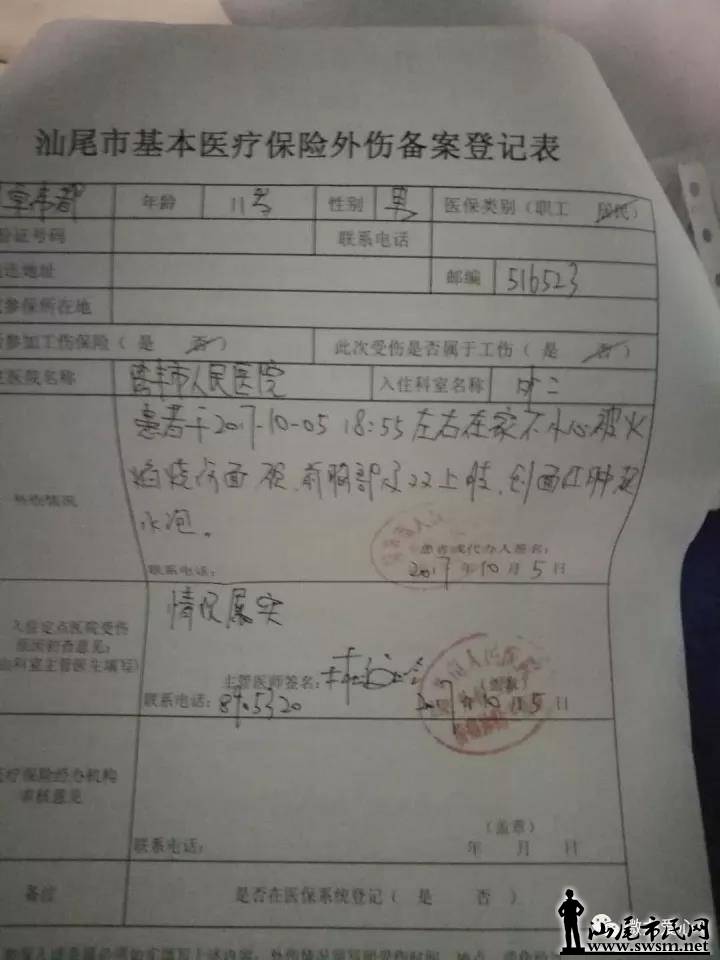 汕尾市基本医疗保险外伤备案登记表
年龄 11岁 性别 男 医保类别（职工 居民）
份证号码 联系电话
地址 邮编 516523
参保所在地
参加工伤保险（是 否） 此次受伤是否属于工伤（是 否）
住医院名称 陆丰市人民医院 入住科室名称 外二
外伤情况
患者于2017-10-05 18:55左右在家不小心被火
焰烧伤面颈、前胸部及双上肢，创面红肿起
水泡。
患者或代办人签名：
联系电话： 2017年10月5日
入住定点医院受伤
原因初查意见：
由科室主管医生填写）
情况属实
主管医师签名：
联系电话：8905320 2017年10月5日
医疗保险经办机构
审核意见
（盖章）
联系电话： 年 月 日
备注 是否在医保系统登记（是 否）
汕尾市民网
www.swsm.net